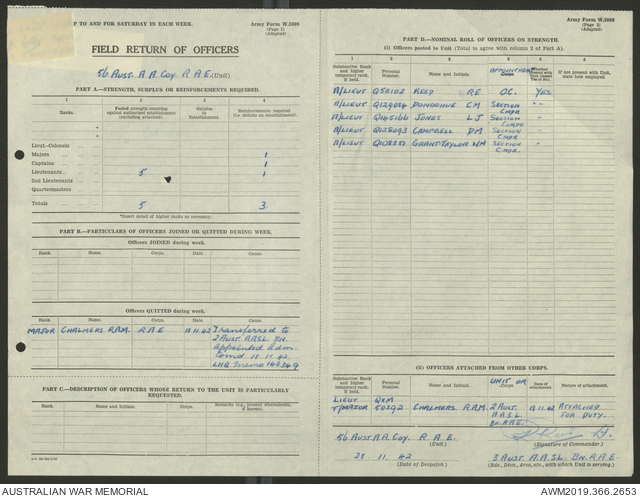 P TO AND FOR SATURDAY IN EACH WEEK.
Army Form W.3008
(Page 1)
(Adapted)
FIELD RETURN OF OFFICERS
56 Aust. A.A. Coy. R.A.E. (Unit)
PART A.—STRENGTH, SURPLUS OR REINFORCEMENTS REQUIRED.
1 2 3 4
Ranks.
Posted strength counting against authorised establishment (excluding attached).
Surplus to Establishment.
Reinforcements required (i.e. deficits on establishment).
Lieut.-Colonels
Majors 1
Captains 1
Lieutenants 5 1
2nd Lieutenants
Quartermasters
Totals 5 3
*Insert detail of higher ranks as necessary.
PART B.—PARTICULARS OF OFFICERS JOINED OR QUITTED DURING WEEK.
Officers JOINED during week.
Rank. Name. Corps. Date. Cause.
Officers QUITTED during week.
Rank. Name. Corps. Date. Cause.
MAJOR CHALMERS. R.A.M. R.A.E 18.11.42 Transferred to
2 Aust. AASL BN.
appointed Adm
Comd 18.11.42.
LHQ memo 146349
PART C.—DESCRIPTION OF OFFICERS WHOSE RETURN TO THE UNIT IS PARTICULARLY
REQUESTED.
Rank. Name and Initials. Corps.
Army Form W.3008
(Page 2)
(Adapted)
PART D.—NOMINAL ROLL OF OFFICERS ON STRENGTH.
(i) Officers posted to Unit (Total to agree with column 2 of Part A).
1 2 3 4 5 6
Substantive Rank and higher temporary rank, if held.
Personal Number.
Name and Initials.
APPOINTMENT
Corps.
Whether present with Unit (insert Yes or No).
If not present with Unit, state how employed.
A/LIEUT Q50102 REED R E OC. YES
A/LIEUT DONOGHUE C M SECTION CMDR "
A/LIEUT Q145166 JONES L J SECTION "
A/LIEUT CAMPBELL D M SECTION CMDR "
A/LIEUT GRANT-TAYLOR W M SECTION CMDR. "
(ii) OFFICERS ATTACHED FROM OTHER CORPS.
Substantive Rank and higher temporary rank, if held.
Personal Number.
Name and Initials.
UNIT OR
Corps.
Date of attachment.
Nature of attachment.
LIEUT QXM
T/MAJOR 50392 CHALMERS. R.A.M. 2 Aust. A.A.S.L. BN. R.A.E. 18.11.42 ATTACHED FOR DUTY.
56 Aust A.A. Coy. R.A.E.
(Unit.)
(Signature of Commander.)
28 11 42
(Date of Despatch.)
3 Aust. A.A.SL. Bn. R.A.E.
(Bde., Divn., Area, etc., with which Unit is serving.)
AUSTRALIAN WAR MEMORIAL
AWM2019.366.2653